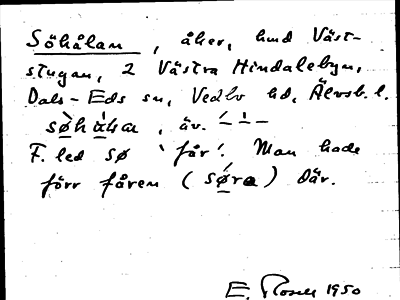 Söhålan, åker, hmd Väst-
stugan, 2 Västra Hindalebyn,
Dals-Eds sn, Vedbo hd, Älvsb. l.
F. led sø 'får'. Man hade
förr fåren (søra) där.
E. Rosell 1950